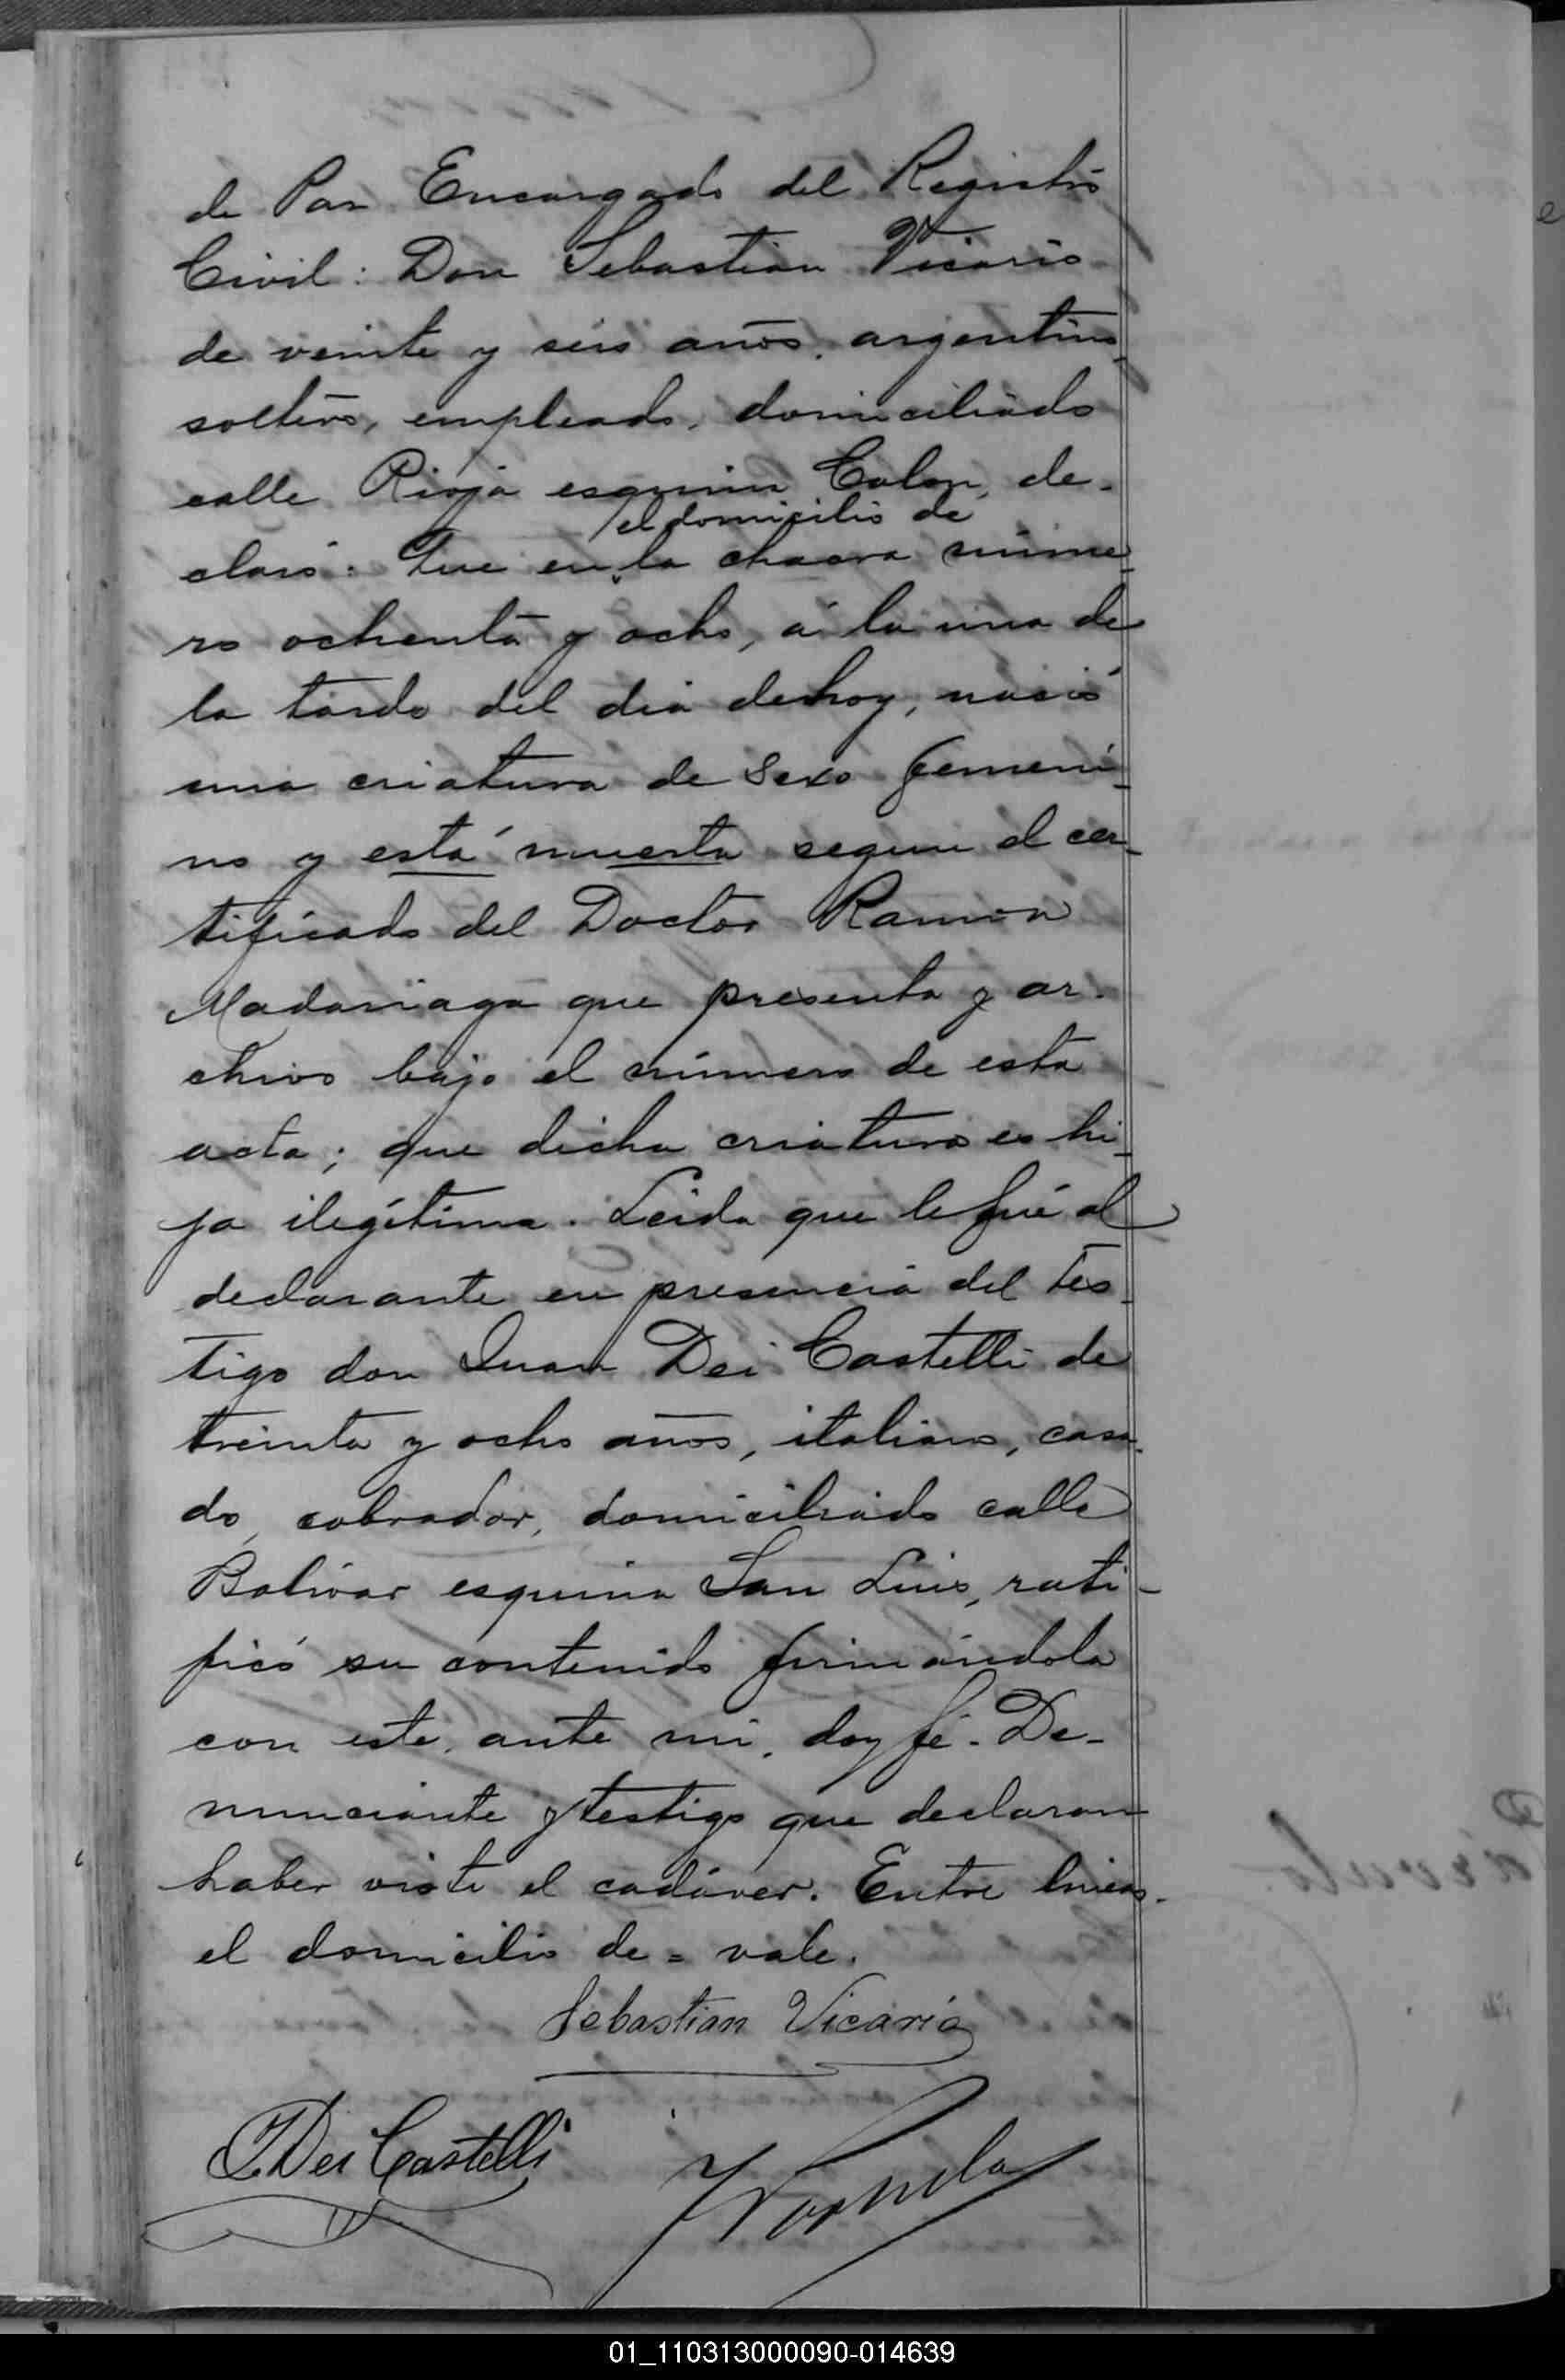 de Paz Encargado del Registro
Civil: Don Sebastian Vicario
de veinte y seis años, argentino,
soltero, empleado, domiciliado
calle Rioja esquina Colon, de-
el domicilio de
claró: Que en la chacra núme-
ro ochenta y ocho, á la una de
la tarde del dia de hoy, nació
una criatura de sexo femeni-
no y está muerta segun el cer-
tificado del Doctor Ramon
Madariaga que presenta y ar-
chivo bajo el número de esta
acta; que dicha criatura es hi-
ja ilegítima. Leida que le fué al
declarante en presencia del tes-
tigo don Juan Dei Castelli de
treinta y ocho años, italiano, casa-
do, cobrador, domiciliado calle
Bolívar esquina San Luis, rati-
ficó su contenido firmándola
con este, ante mi, doy fé. De-
nunciante y testigo que declaran
haber visto el cadáver. Entre lineas-
el domicilio de = vale.
Sebastian Vicario
J Dei Castelli
01_110313000090-014639